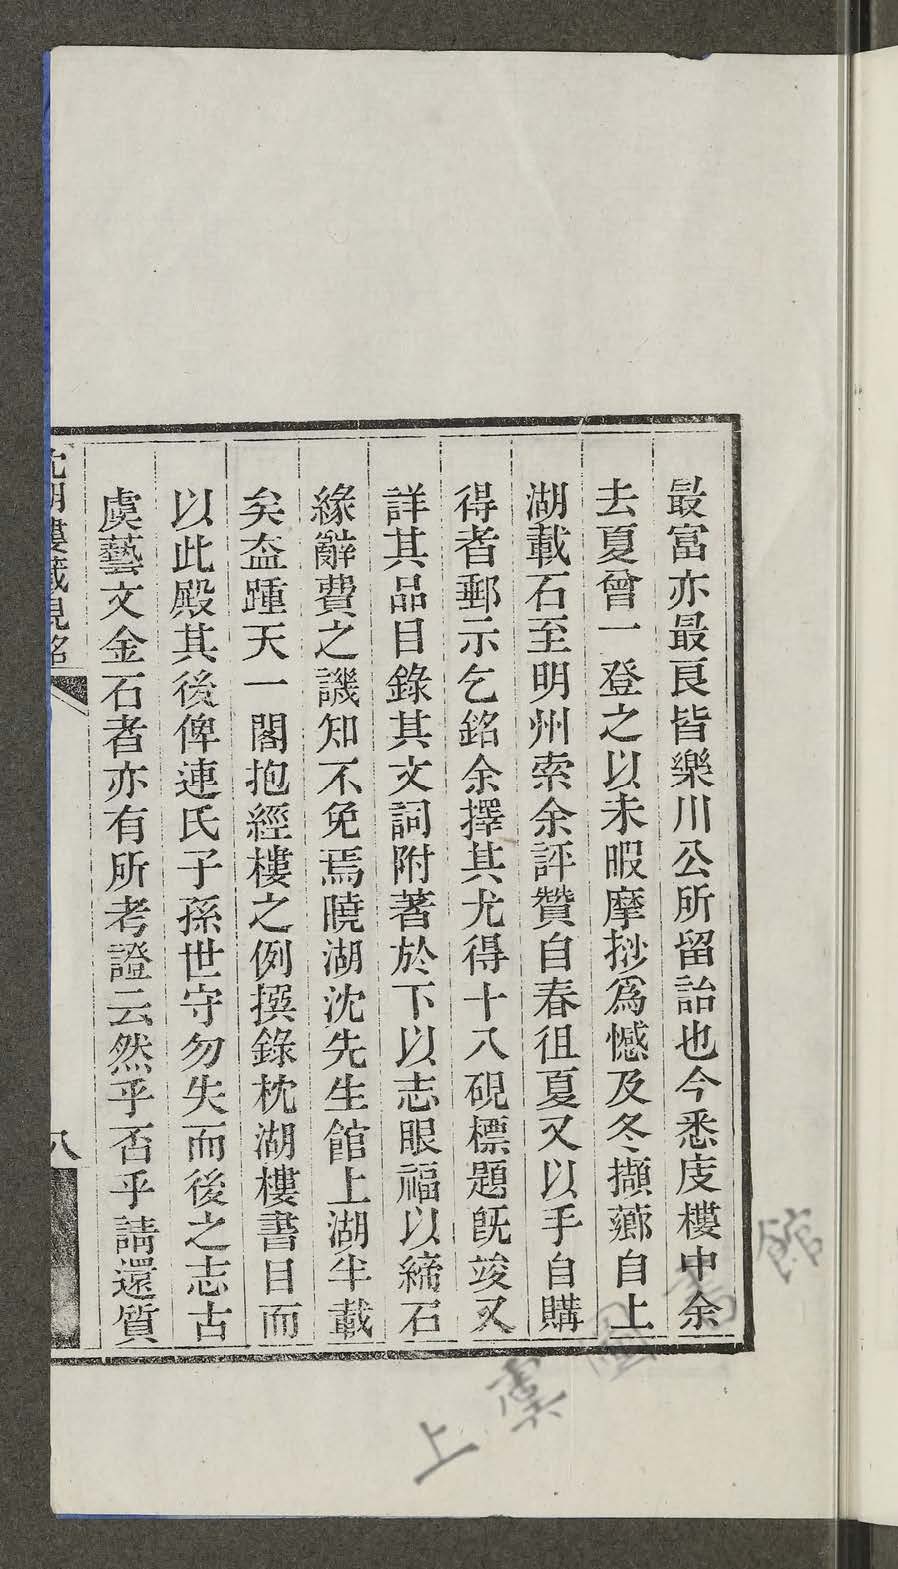 最富亦最良皆樂川公所留詒也今悉庋樓中余
去夏曾一登之以未暇摩挱爲憾及冬擷薌自上
湖載石至明州索余評贊自春徂夏又以手自購
得者郵示乞銘余擇其尤得十八硯標題旣竣又
詳其品目錄其文詞附著於下以志眼福以締石
緣辭費之譏知不免焉曉湖沈先生館上湖半載
矣盍踵天一閣抱經樓之例撰錄枕湖樓書目而
以此殿其後俾連氏子孫世守勿失而後之志古
虞藝文金石者亦有所考證云然乎否乎請還質
湖樓藏硯銘
八
上虞圖書館